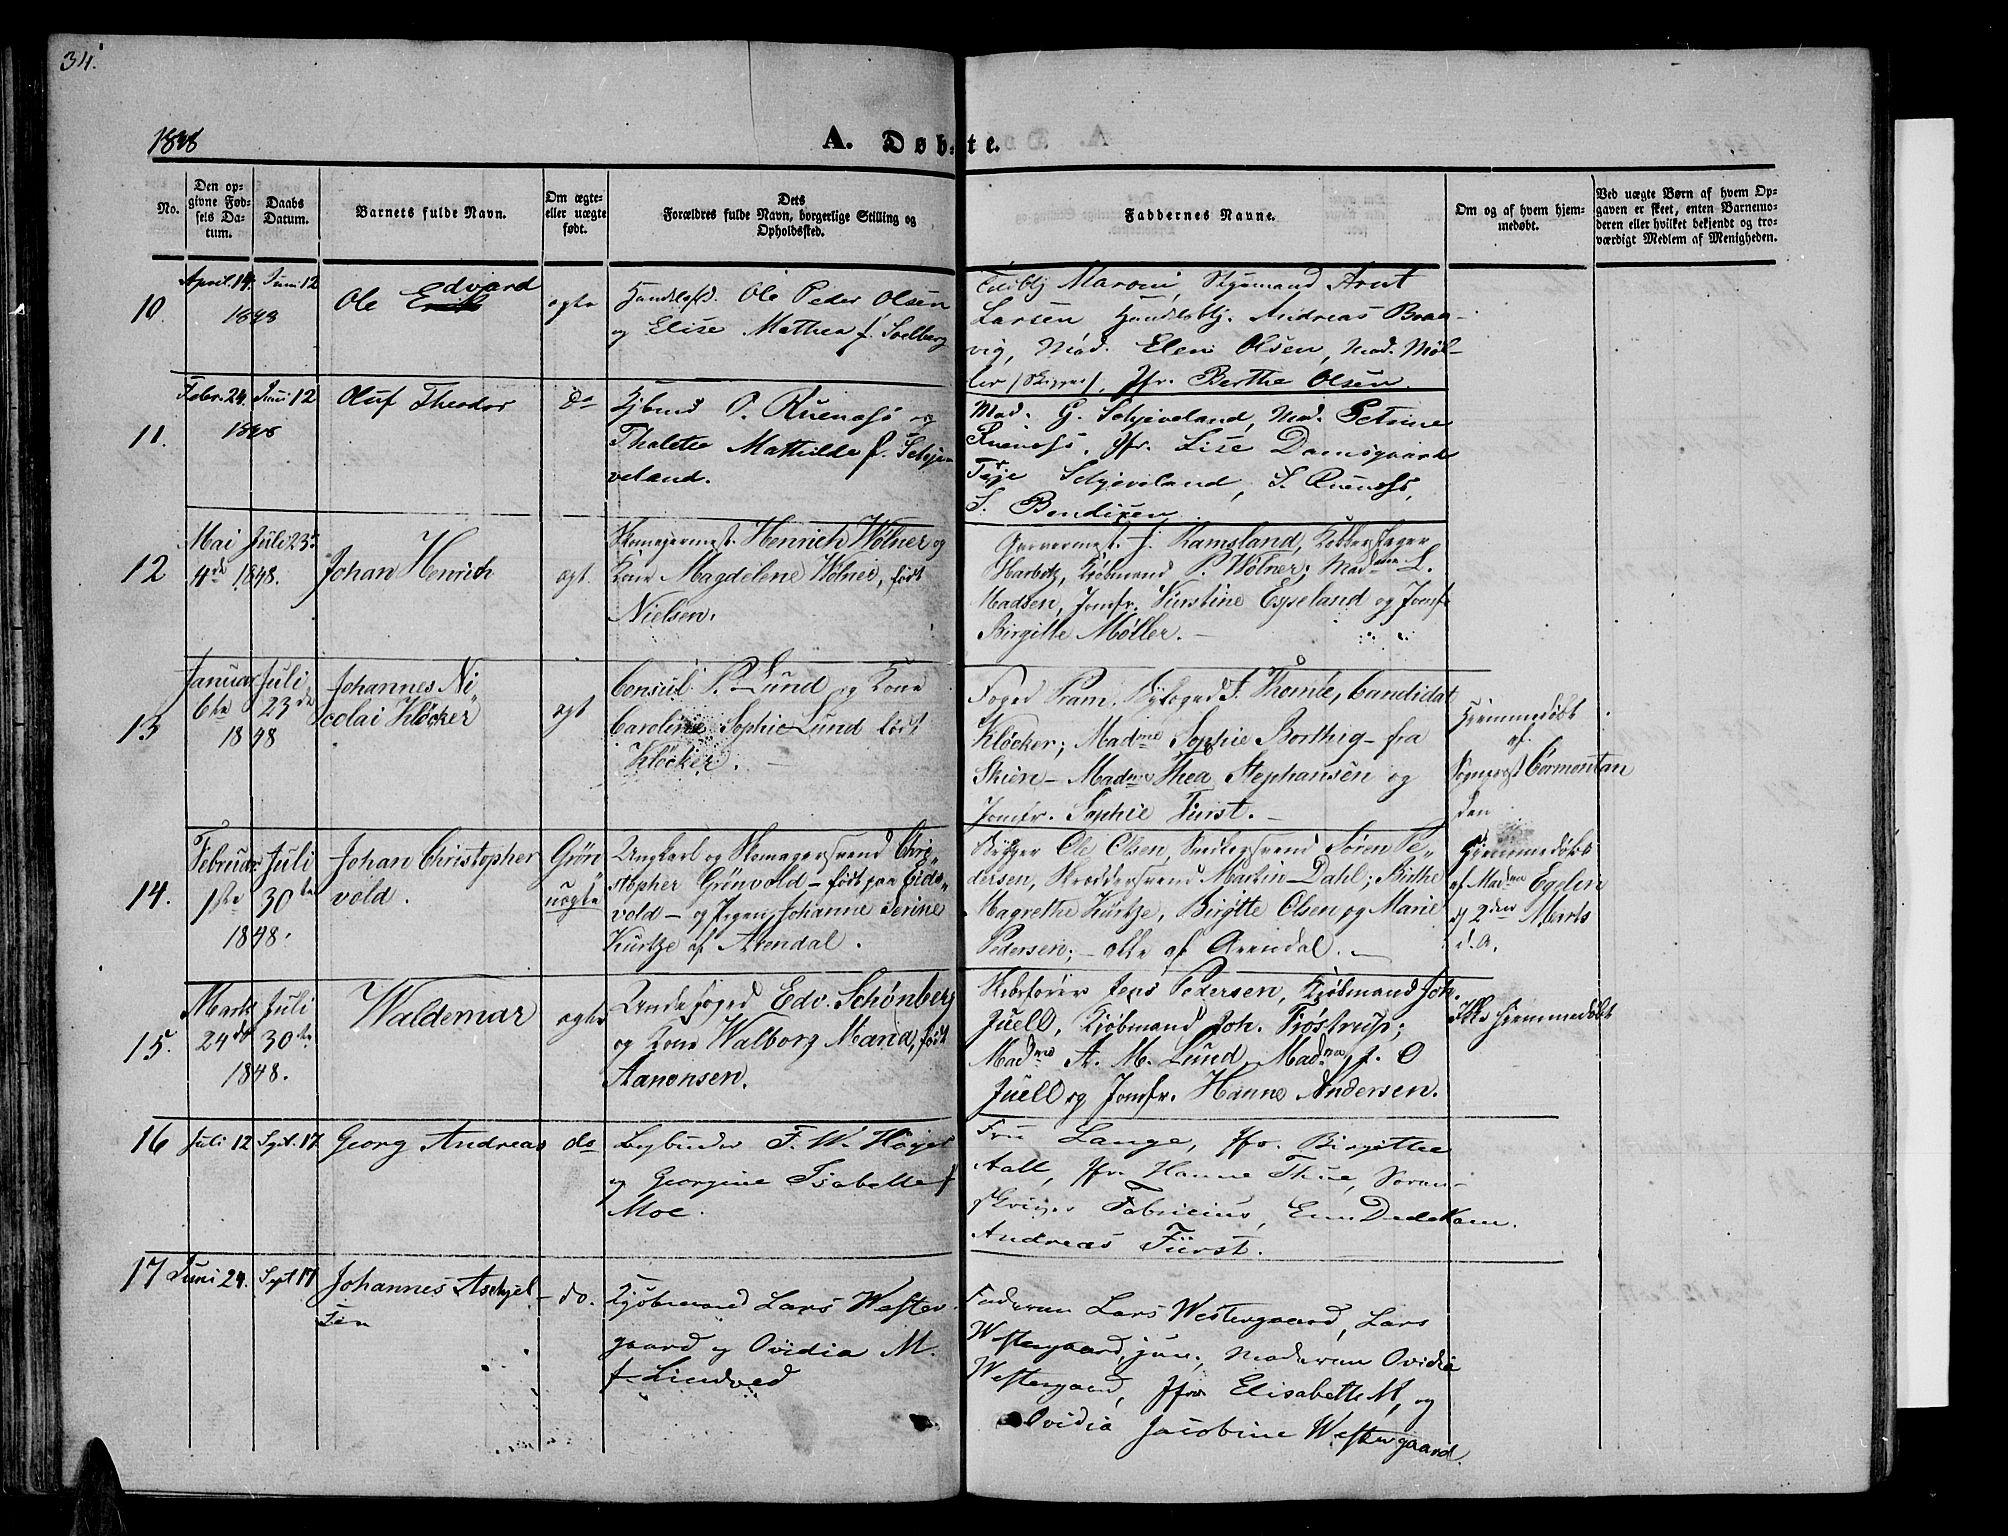 34.
1848
A. Døbte.
No.
Den opgivne Fødsels Datum.
Daabs Datum.
Barnets fulde Navn.
Om ægte- eller uægte født.
Dets Forældres fulde Navn, borgerlige Stilling og Opholdssted.
Faddernes Navne.
Om og af hvem hjemmedøbt.
Ved uægte Børn af hvem Opgaven er skeet, enten Barnemoderen eller hvilket bekjendt og troværdigt Medlem af Menigheden.
10.
April. 14. Juni 12
1848
Ole Edvard
ægte
Ole Peder Olsen
og Elise Mathea f. Solberg
Styrmand Arnt
Larsen, Andreas Braavig,
Mad. Olsen, Mad. Møller
(Skipper), Jfr. Berthe Olsen.
11.
Febr. 24. Juni 12
1848
Oluf Theodor
do
Kjbmd O. Ruenæss og
Thalette Mathilde f. Schjeveland.
Mad. G. Schjeveland, Mad. Petrine
Ruenæss, Jfr. Lise Damsgaard
Terje Schjeveland, S. Ruenæss,
S. Bendixen
12
Mai 4de Juli 23de
1848.
Johan Henrich
ægt.
Skomagermest. Henrich Wölner og
Kone Magdelene Wölner, født
Nielsen.
Garvermest. J. Ramsland, Kobberslager
Harbitz, Kjøbmand P. Wölner; Madme L.
Madsen, Jomfr. Kirstine Espeland og Jomfr
Birgitte Møller. –
13
Januar 6te Juli 23de
1848
Johannes Nicolai
Klöcker
ægt
Consul P. Lund og Kone
Caroline Sophie Lund født
Klöcker.
Foged Pram, Byfoged F. Thomle, Candidat
Klöcker; Madme Sophie Borthig – fra
Skien – Madme Thea Stephansen og
Jomfr. Sophie Fürst. –
Hjemmedøbt
af
Sognepræst Cormontan
den
14.
Februar 1ste Juli 30te
1848.
Johan Christopher Grönvold.
uægte
Ungkarl og Skomagersvend Christopher
Grönvold – født paa Eidsvold
– og Pigen Johanne Serine
Kürtze af Arendal.
Skipper Ole Olsen, Sadlersvend Søren Pedersen,
Skræddersvend Martin Dahl; Birthe
Magrethe Kürtze, Birgitte Olsen og Marie
Pedersen; – alle af Arendal. –
Hjemmedøbt
af Madme Egelen
d 2den Marts
d. A.
15.
Marts 24de Juli 30te
1848.
Waldemar
ægte
Edv. Schönberg
og Kone Walborg Maria, født
Aanonsen.
Skibsfører Jens Pedersen, Kjøbmand Joh.
Juell, Kjøbmand Joh. Trøstrup;
Madme A. M. Lund, Madme J. O
Juell og Jomfr. Hanne Andersen.
Ikke hjemmedøbt
16
Juli 12 Sept. 17
Georg Andreas
do
F. W.
og Georgine Isabelle f
Moe.
Fru Lange, Jfr. Birgitte
Aall, Jfr. Hanne Thue, Sorenskriver
Fabricius, Dedekam.
Andreas Fürst.
17
Juni 24. Sept 17
Johannes Aschjelsen
do.
Kjøbmand Lars Westergaard
og Ovidia M.
f. Lindved
Faderen Lars Westergaard, Lars
Westergaard jun., Moderen Ovidia
Westergaard, Jfr Elisabette M, og
Ovidia Jacobine Westergaard.